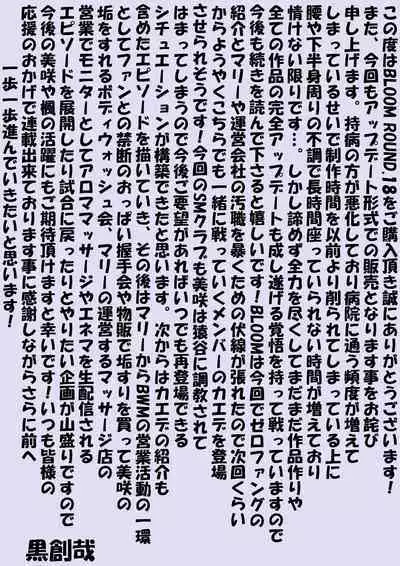 この度はBLOOM ROUND.18をご購入頂き誠にありがとうございます！
また、今回もアップデート形式での販売となります事をお詫び
申し上げます。持病の方が悪化しており病院に通う頻度が増えて
しまっているせいで制作時間を以前より削られてしまっている上に
腰や下半身周りの不調で長時間座っていられない時間が増えており
情けない限りです…。しかし諦めず全力を尽くしてまだまだ作品作りや
全ての作品の完全アップデートも成し遂げる覚悟を持って戦っていきますので
今後も続きを読んで下さると嬉しいです！BLOOMは今回でゼロファングの
紹介とマリーや運営会社の汚職を暴くための伏線が張れたので次回くらい
からようやくこちらでも一緒に戦っていくメンバーのカエデを登場
させられそうです！今回のSMクラブも美咲は猿谷に調教されて
はまってしまうので今後ご要望があればいつでも再登場できる
シチュエーションが構築できたと思います。次からはカエデの紹介も
含めたエピソードを描いていき、その後はマリーからBWMの営業活動の一環
としてファンとの禁断のおっぱい握手会や物販で垢すりを買って美咲の
垢をすれるボディウォッシュ会、マリーの運営するマッサージ店の
営業でモニターとしてアロママッサージやエネマを生配信される
エピソードを展開したり試合に戻ったりとやりたい企画が山盛りですので
今後の美咲や楓の活躍にもご期待頂けますと幸いです！いつも皆様の
応援のおかげで連載出来ております事に感謝しながらさらに前へ
一歩一歩進んでいきたいと思います！
黒創哉